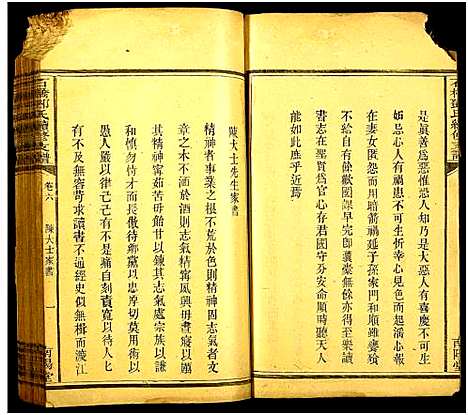 石橋鄧氏續修支譜
南陽堂
是眞善為惡惟恐人知乃是大惡人有喜慶不可生
妒忌心人有禍患不可生忻幸心見色而起淫心報
在妻女匿怨而用暗箭禍延子孫家門和順雖饔飧
不繼亦有餘歡國課早完即囊橐無餘亦得至樂讀
書志在聖賢為官心存君國守分安命順時聽天人
能如此庶乎近焉
陳大士先生家書
精神者事業之根不荒於色則精神固志氣者文
章之木不涵於酒則志氣精寓風興毋
其精神甯茹苦毋飴甘以鍊其志氣處宗族以謙
和愼勿恃才而長傲待鄉黨以忠厚切莫用術以害
人嚴以律己己有不是痛自刻責寬以
有不及無容苛求讀書不通經史似無楫而渡江
石橋鄧氏續修支譜
卷六
陳大士家書
一
南陽堂